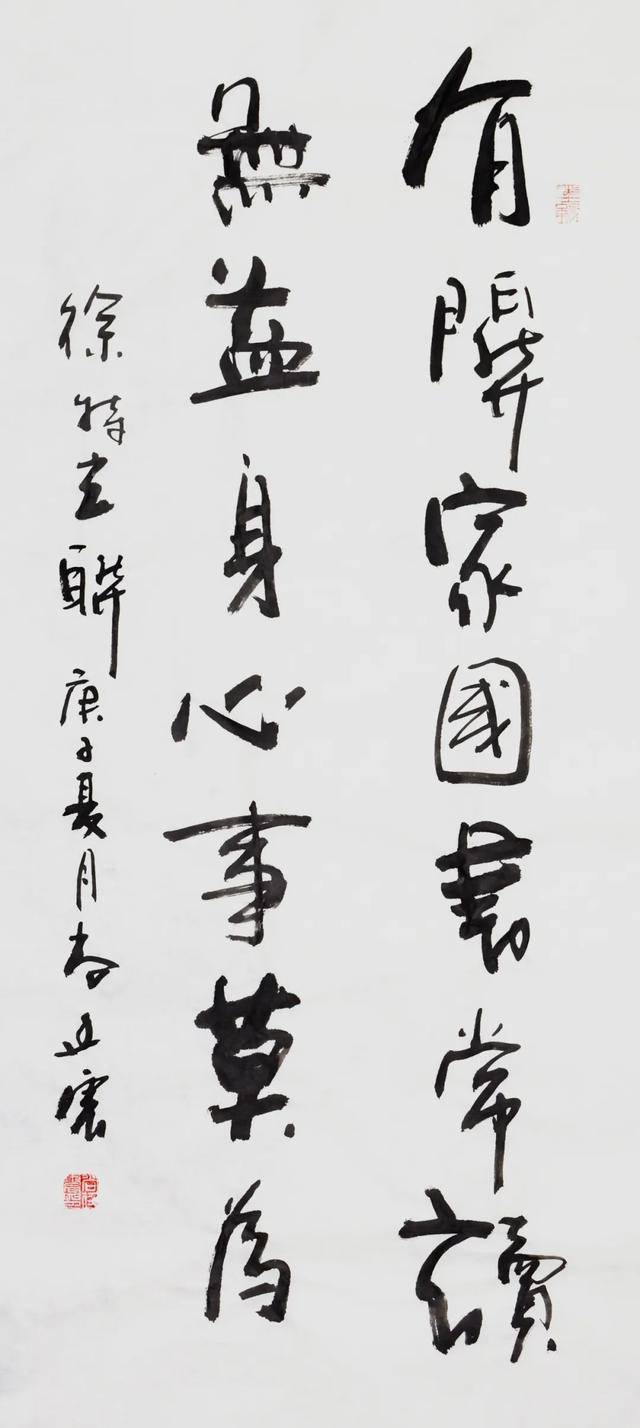 有關家國書常讀
無益身心事莫為
徐特立聯庚子夏月